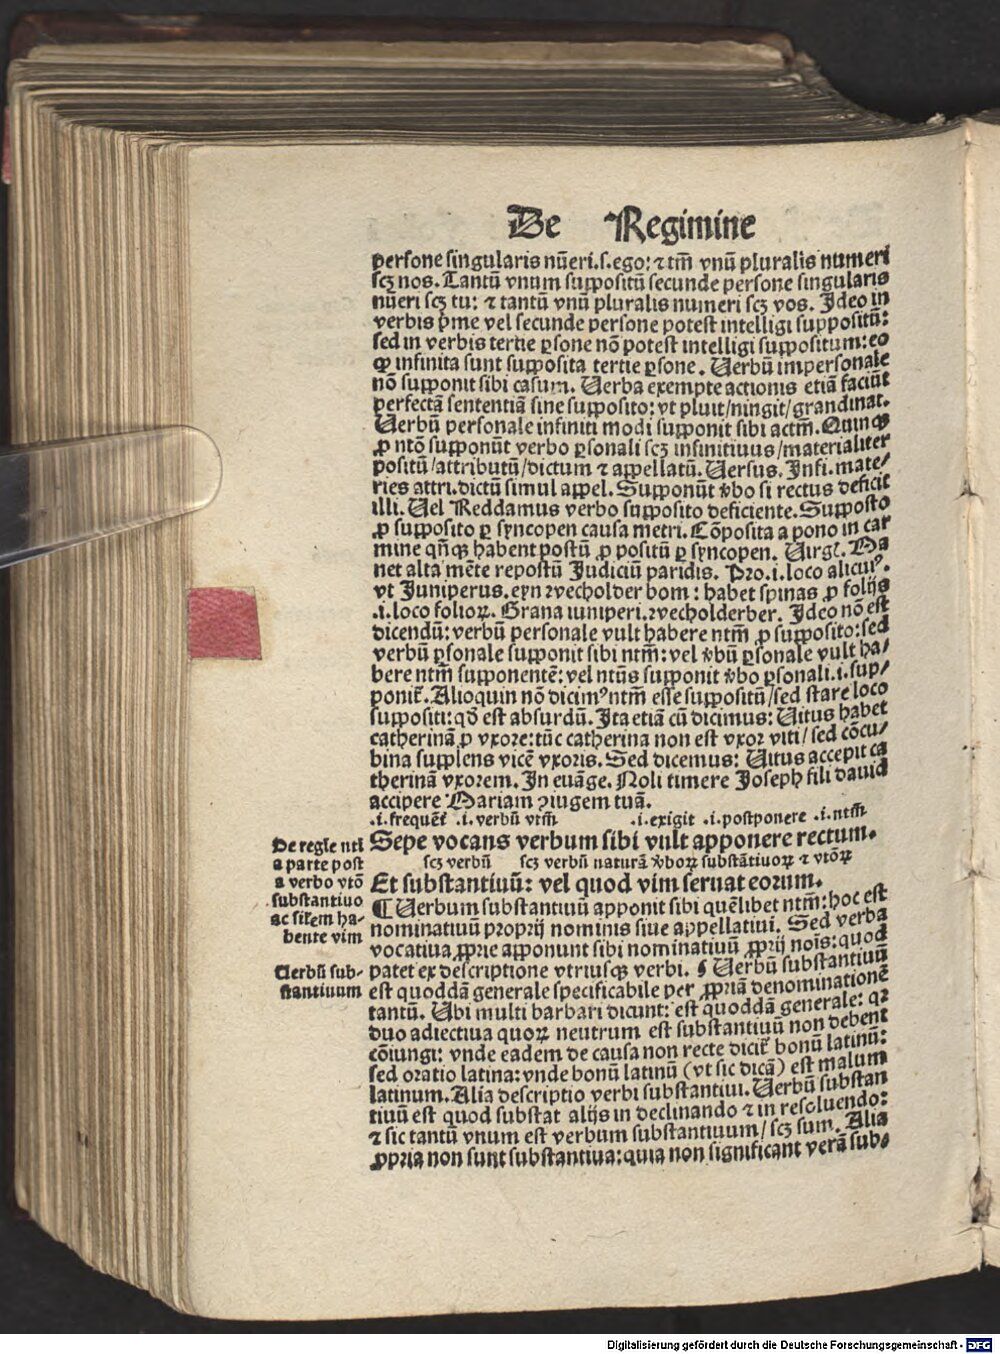 De Regimine
persone singularis nūeri.s.ego: ⁊ tm̄ vnū pluralis numeri
scꝫ nos. Tantū vnum suppositū secunde persone singularis
nūeri scꝫ tu: ⁊ tantū vnū pluralis numeri scꝫ vos. Ideo in
verbis p̄me vel secunde persone potest intelligi suppositū:
sed in verbis tertie ꝑsone nō potest intelligi suppositum: eo
ꝙ infinita sunt supposita tertie ꝑsone. Uerbū impersonale
nō supponit sibi casum. Uerba exempte actionis etiā faciūt
perfectā sententiā sine supposito: vt pluit/ningit/grandinat.
Uerbū personale infiniti modi supponit sibi actm̄. Quinqꝫ
ꝓ ntō supponūt verbo ꝑsonali scꝫ infinitiuus/materialiter
positū/attributū/dictum ⁊ appellatū. Uersus. Infi. mate/
ries attri. dictū simul appel. Supponūt v̄bo si rectus deficit
illi. Uel Reddamus verbo supposito deficiente. Supposto
ꝓ supposito ꝑ syncopen causa metri. Cōposita a pono in car
mine qn̄qꝫ habent postū ꝓ positū ꝑ syncopen. Uirgl. Ma
net alta mēte repostū Judiciū paridis. Pro .i. loco alicuiꝰ.
vt Juniperus. eyn ꝛvecholder bom: habet spinas ꝓ folijs
.i. loco folioꝝ. Grana iuniperi. ꝛvecholderber. Ideo nō est
dicendū: verbū personale vult habere ntm̄ ꝓ supposito: sed
verbū ꝑsonale supponit sibi ntm̄: vel v̄bū ꝑsonale vult ha/
bere ntm̄ supponentē: vel ntūs supponit v̄bo ꝑsonali .i. sup/
ponit̄. Alioquin nō dicimꝰ ntm̄ esse suppositū/sed stare loco
suppositi: qd̄ est absurdū. Ita etiā cū dicimus: Uitus habet
catherinā ꝓ vxore: tūc catherina non est vxor viti/ sed cōcu/
bina supplens vicē vxoris. Sed dicemus: Uitus accepit ca
therinā vxorem. In euāge. Noli timere Joseph fili dauid
accipere Mariam ꝯiugem tuā.
.i. frequēt̄ .i. verbū vtm̄ .i. exigit .i. postponere .i. ntm̄
Sepe vocans verbum sibi vult apponere rectum.
scꝫ verbū scꝫ verbū naturā v̄boꝝ substātiuoꝝ ⁊ vtōꝝ
Et substantiuū: vel quod vim seruat eorum.
De regīe nti
a parte post
a verbo vtō
substantiuo
ac silem ha-
bente vim
¶ Uerbum substantiuū apponit sibi quēlibet ntm̄: hoc est
nominatiuū proprij nominis siue appellatiui. Sed verba
vocatiua ꝓprie apponunt sibi nominatiuū ꝓprij nois̄: quod
patet ex descriptione vtriusqꝫ verbi. ¶ Uerbū substantiuū
Uerbū sub-
stantiuum
est quoddā generale specificabile per ꝓpriā denominationē
tantū. Ubi multi barbari dicunt: est quoddā generale: qꝛ
duo adiectiua quoꝝ neutrum est substantiuū non debent
cōiungi: vnde eadem de causa non recte dicit̄ bonū latinū:
sed oratio latina: vnde bonū latinū (vt sic dicā) est malum
latinum. Alia descriptio verbi substantiui. Uerbū substan
tiuū est quod substat alijs in declinando ⁊ in resoluendo:
⁊ sic tantū vnum est verbum substantiuum/ scꝫ sum. Alia
ꝓpria non sunt substantiua: quia non significant verā sub-
Digitalisierung gefördert durch die Deutsche Forschungsgemeinschaft - DFG